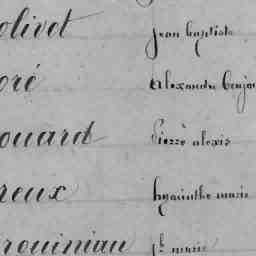 olivet jean baptiste
oré alexandre benja
ouard Pierre alexis
reux hyacinthe marie
rouiniau jh marie